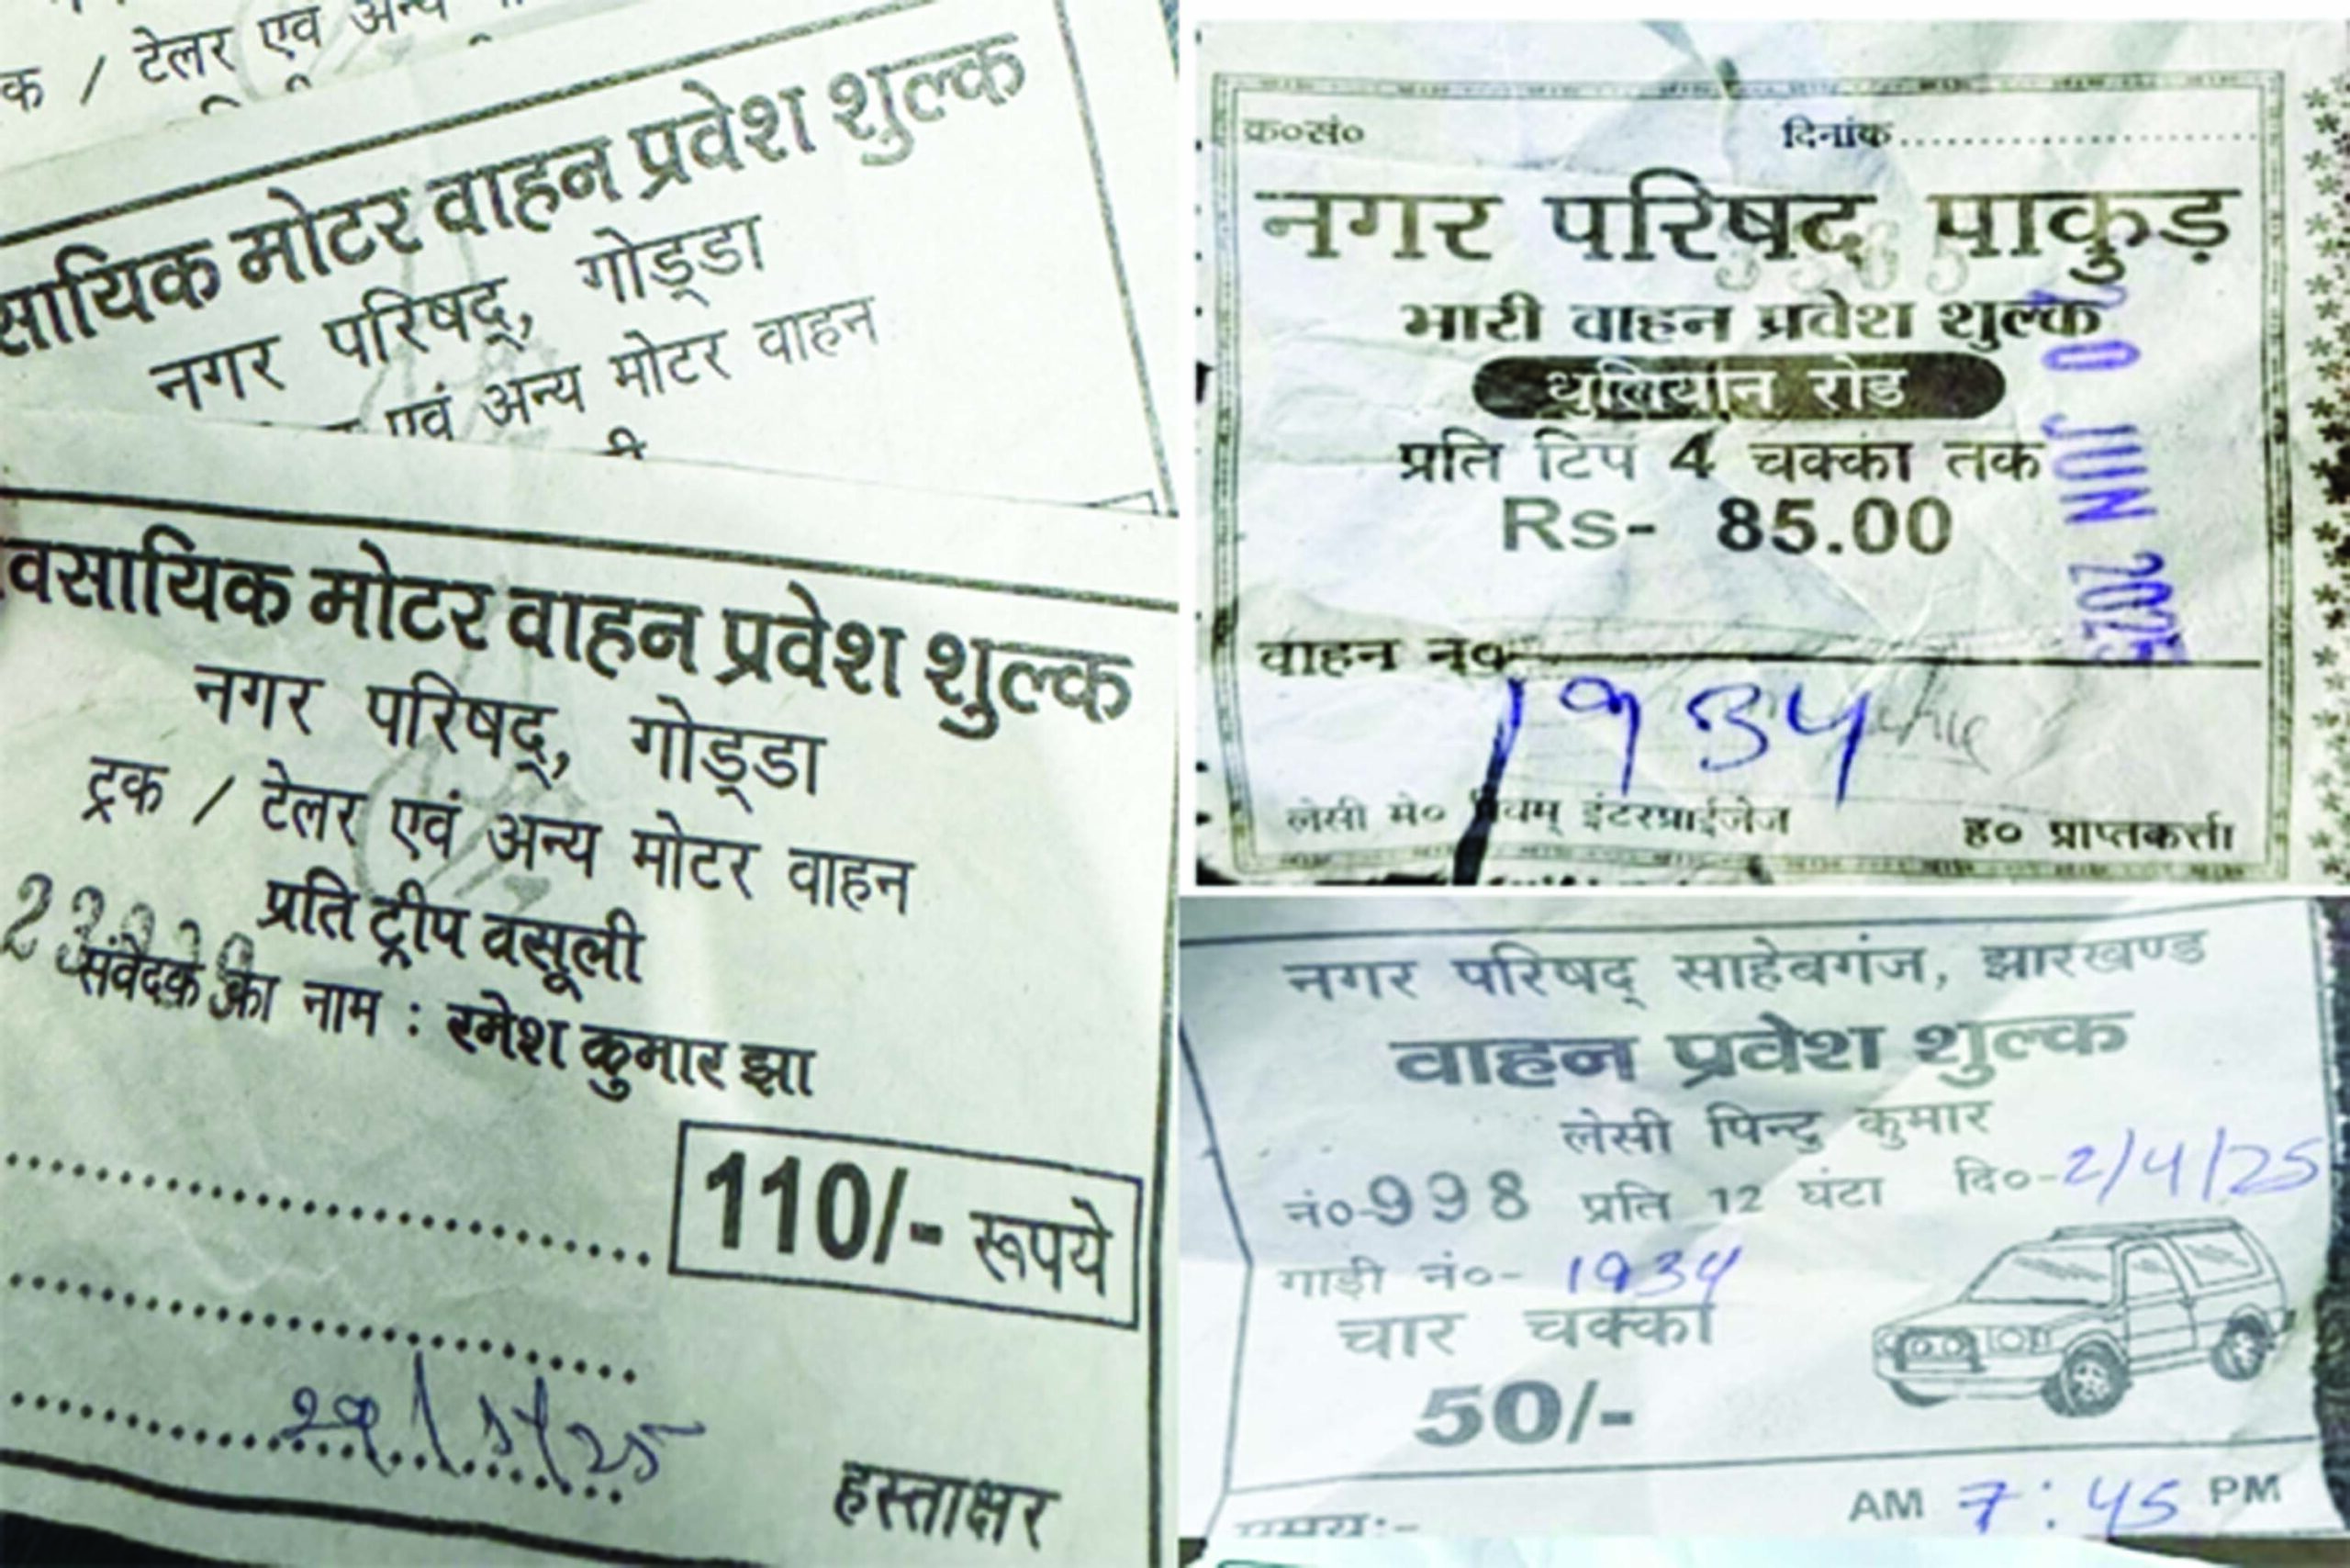 क / टेलर एवं अन्य
सायिक मोटर वाहन प्रवेश शुल्क
नगर परिषद्, गोड्डा
एवं अन्य मोटर वाहन
वसायिक मोटर वाहन प्रवेश शुल्क
नगर परिषद्, गोड्डा
ट्रक / टेलर एवं अन्य मोटर वाहन
प्रति ट्रीप वसूली
संवेदक का नाम : रमेश कुमार झा
110/- रूपये
हस्ताक्षर
क्र०सं० दिनांक
नगर परिषद् पाकुड़
भारी वाहन प्रवेश शुल्क
धुलियान रोड
प्रति टिप 4 चक्का तक
Rs- 85.00
JUN 2025
वाहन न०
1934
लेसी मे० इंटरप्राईजेज ह० प्राप्तकर्त्ता
नगर परिषद् साहेबगंज, झारखण्ड
वाहन प्रवेश शुल्क
लेसी पिन्टु कुमार
नं०-998 प्रति 12 घंटा दि०-2/4/25
गाड़ी नं०- 1934
चार चक्का
50/-
AM 7:45 PM